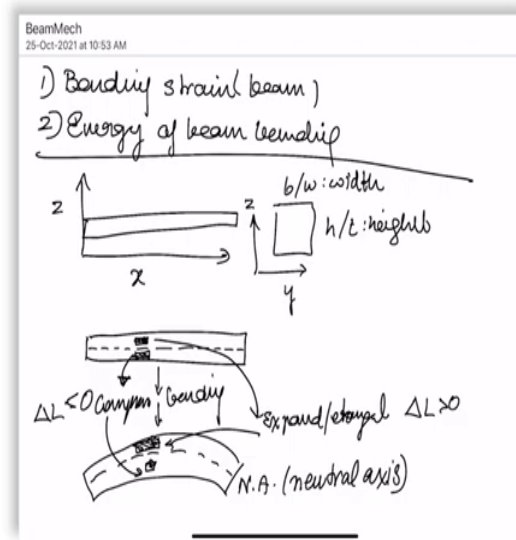 BeamMech
25-Oct-2021 at 10:53 AM
1) Bending strain (beam)
2) Energy of beam bending
b/w : width
z
z
h/t : height
x
y
ΔL<0 Compen
bending
Expand/elongat ΔL>0
N.A. (neutral axis)